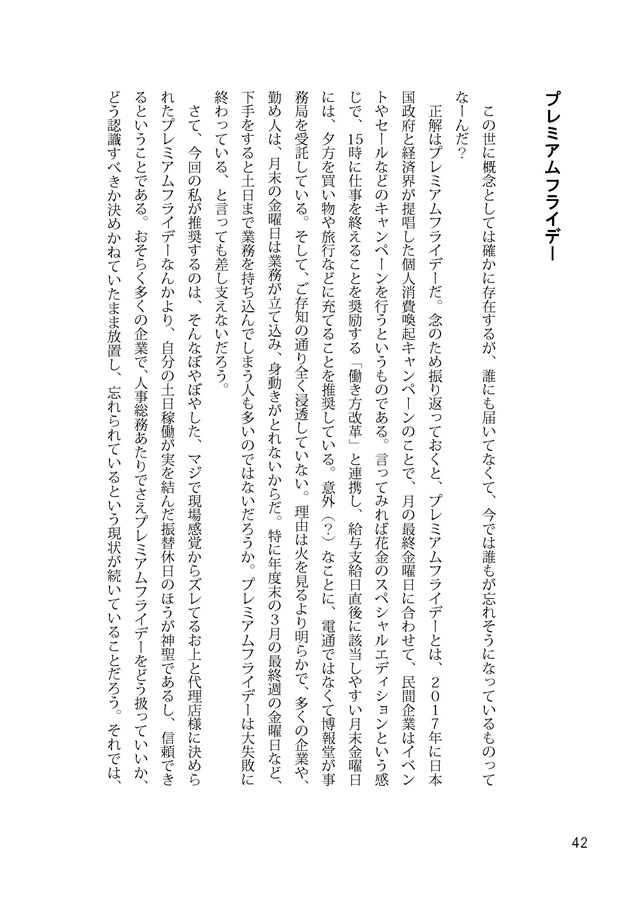 プレミアムフライデー
この世に概念としては確かに存在するが、誰にも届いてなくて、今では誰もが忘れそうになっているものって
なーんだ？
正解はプレミアムフライデーだ。念のため振り返っておくと、プレミアムフライデーとは、２０１７年に日本
国政府と経済界が提唱した個人消費喚起キャンペーンのことで、月の最終金曜日に合わせて、民間企業はイベン
トやセールなどのキャンペーンを行うというものである。言ってみれば花金のスペシャルエディションという感
じで、15時に仕事を終えることを奨励する「働き方改革」と連携し、給与支給日直後に該当しやすい月末金曜日
には、夕方を買い物や旅行などに充てることを推奨している。意外（？）なことに、電通ではなくて博報堂が事
務局を受託している。そして、ご存知の通り全く浸透していない。理由は火を見るより明らかで、多くの企業や、
勤め人は、月末の金曜日は業務が立て込み、身動きがとれないからだ。特に年度末の３月の最終週の金曜日など、
下手をすると土日まで業務を持ち込んでしまう人も多いのではないだろうか。プレミアムフライデーは大失敗に
終わっている、と言っても差し支えないだろう。
さて、今回の私が推奨するのは、そんなぼやぼやした、マジで現場感覚からズレてるお上と代理店様に決めら
れたプレミアムフライデーなんかより、自分の土日稼働が実を結んだ振替休日のほうが神聖であるし、信頼でき
るということである。おそらく多くの企業で、人事総務あたりでさえプレミアムフライデーをどう扱っていいか、
どう認識すべきか決めかねていたまま放置し、忘れられているという現状が続いていることだろう。それでは、
42